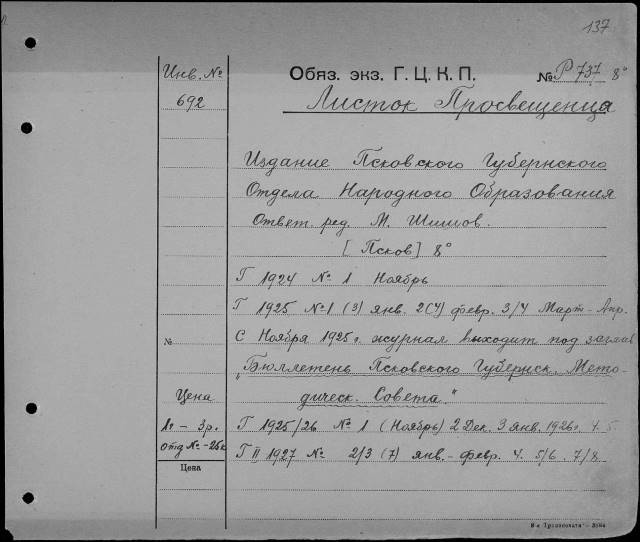 137
Инв. №
692
Обяз. экз. Г. Ц. К. П. № Р 737 8°
Листок Просвещенца
Издание Псковского Губернского
Отдела Народного Образования
Ответ. ред. М. Шишов.
[Псков] 8°
Г 1924 № 1 Ноябрь
Г 1925 № 1 (3) янв. 2(4) февр. 3/4 Март-Апр.
№ С Ноября 1925 г. журнал выходит под заглав
"Бюллетень Псковского Губернск. Мето-
Цена дическ. Совета."
1 г — 3 р. Г 1925/26 № 1 (Ноябрь) 2 Дек. 3 янв. 1926 г. 4. 5
отд № -25к Г II 1927 № 2/3 (7) янв.- февр. 4. 5/6. 7/8
Цена